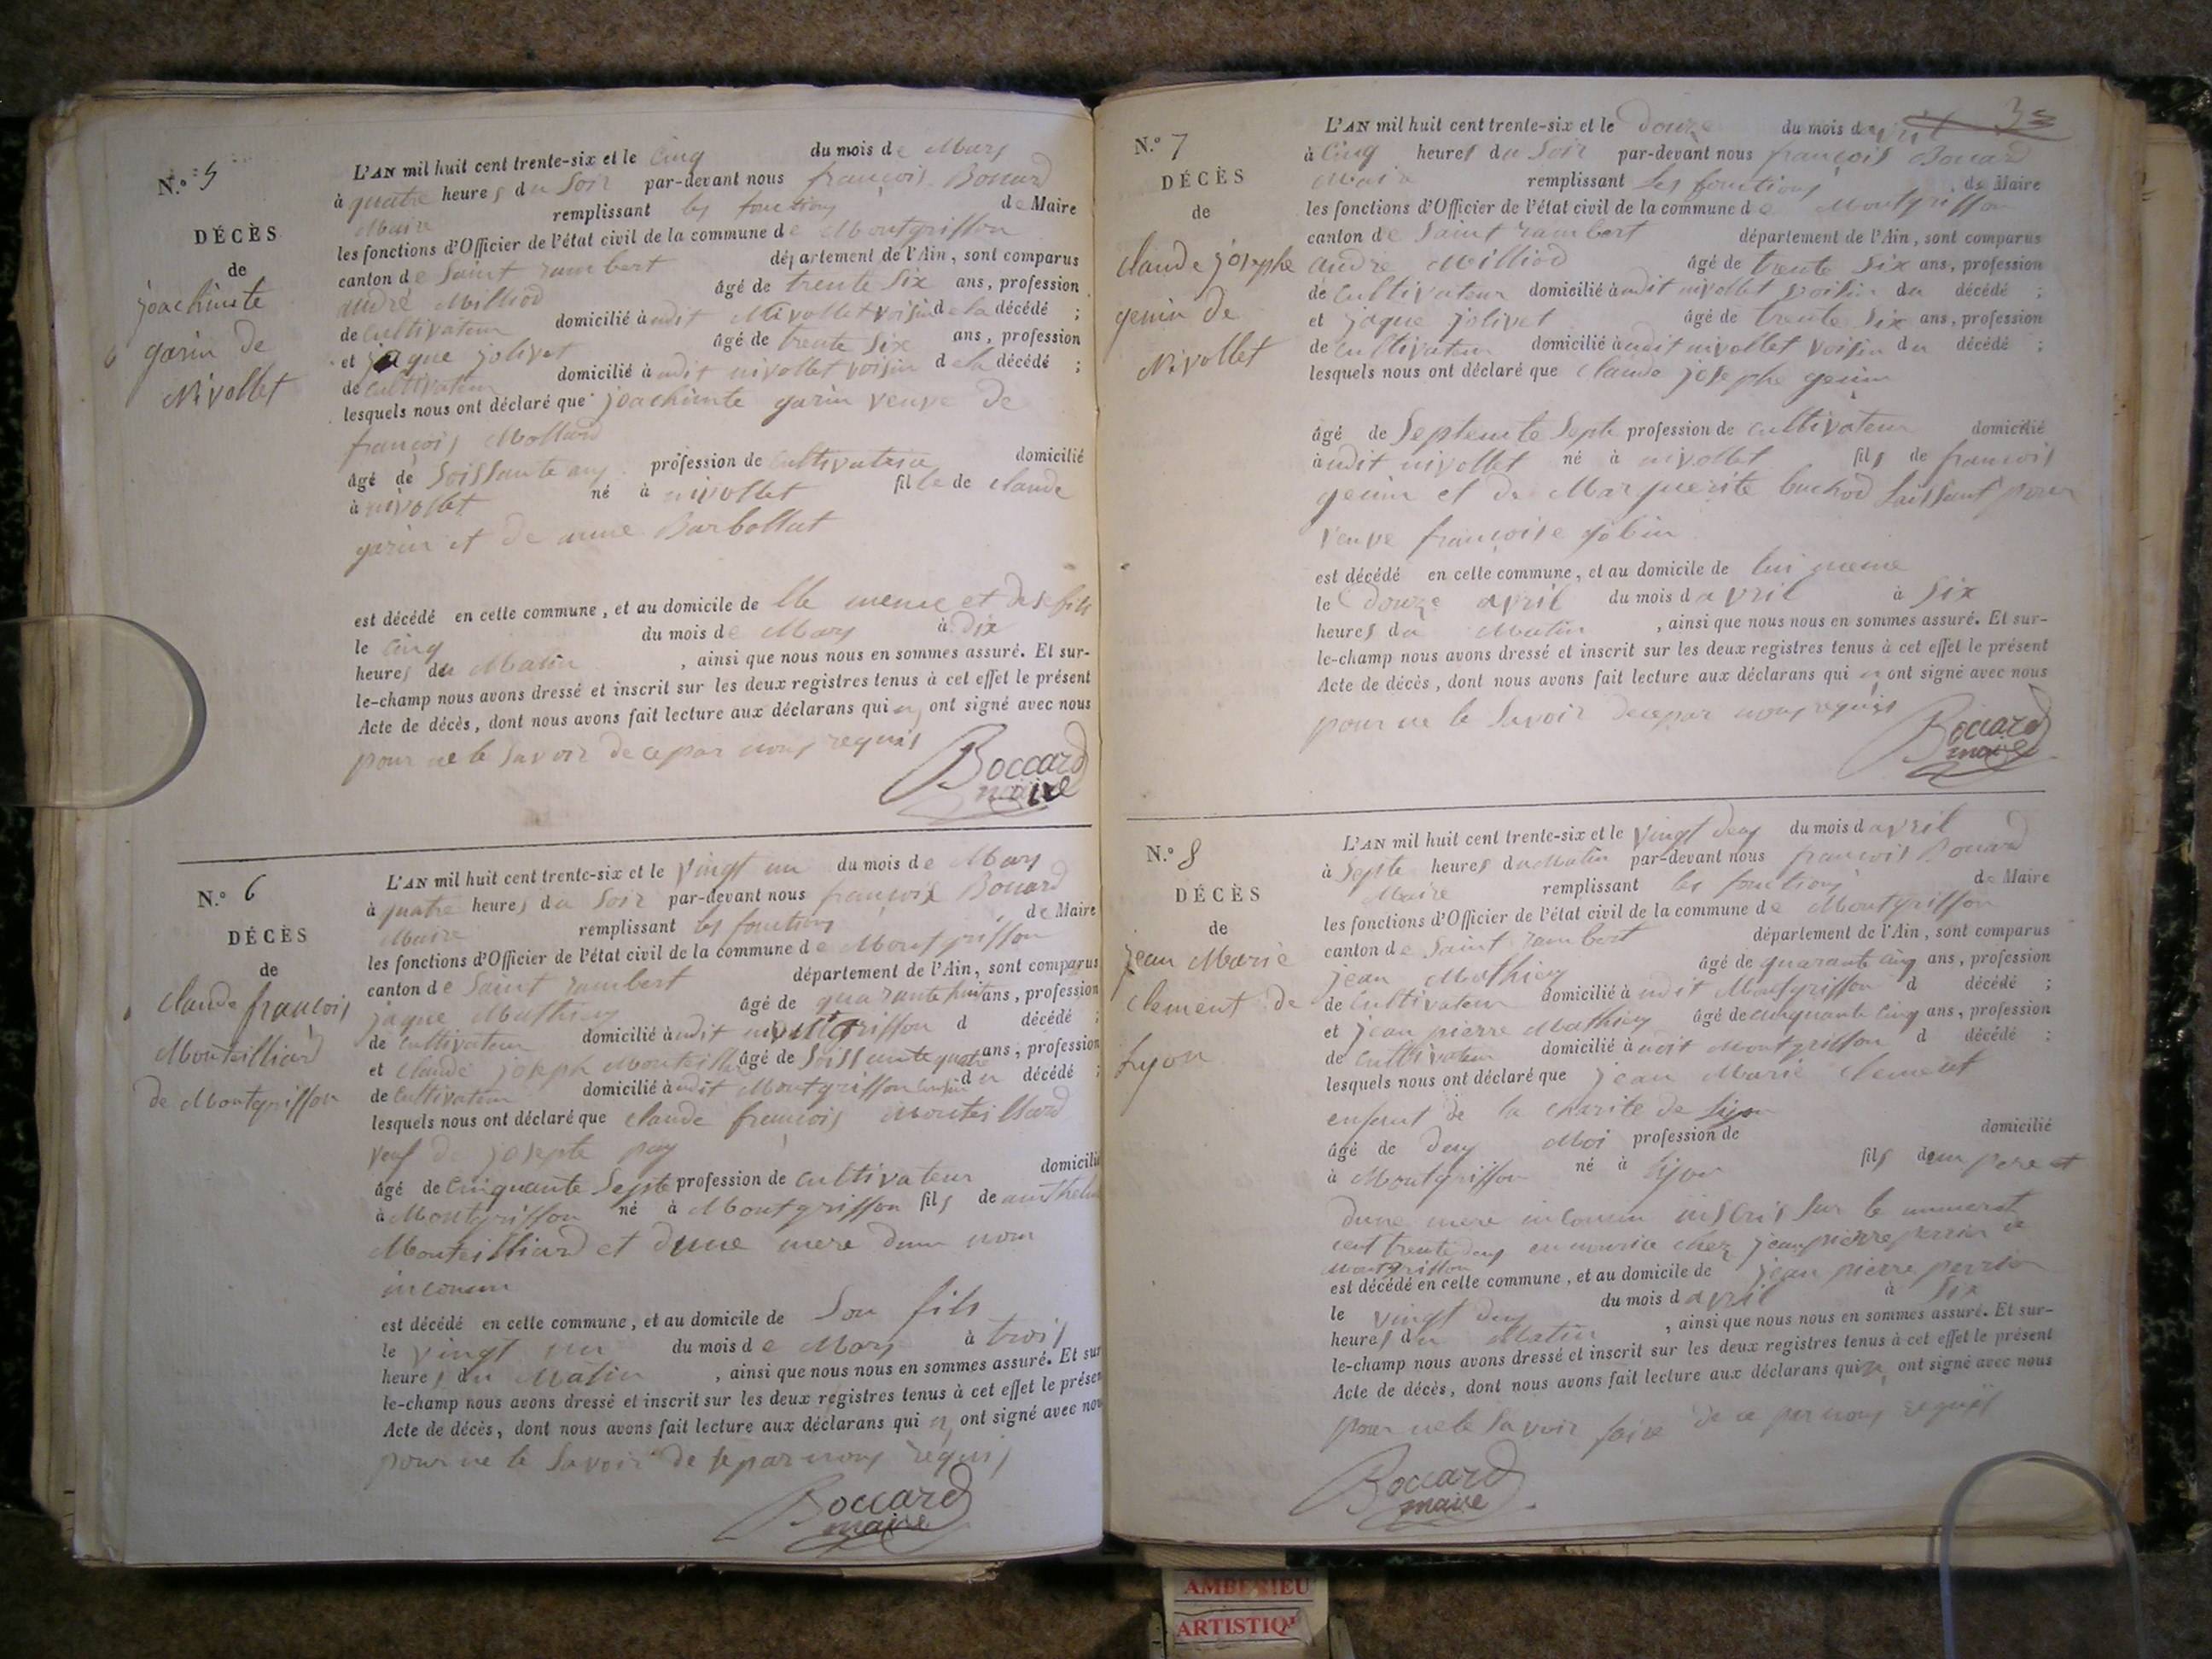 N.º 5
DÉCÈS
de
joachimte
garin de
Nivollet
L'AN mil huit cent trente-six et le Cinq du mois de Mars
à quatre heures du Soir par-devant nous françois Boccard
Maire remplissant les fonctions de Maire
les fonctions d'Officier de l'état civil de la commune de Montgriffon
canton de Saint rambert département de l'Ain, sont comparus
andré Milliod âgé de trente Six ans, profession
de Cultivateur domicilié à udit Nivollet voisin de la décédé ;
et jaque jolivet âgé de trente Six ans, profession
de Cultivateur domicilié à udit nivollet voisin de la décédé ;
lesquels nous ont déclaré que joachimte garin veuve de
françois Mollard
âgé de Soissante ans profession de Cultivatrice domicilié
à nivollet né à nivollet fille de Claude
garin et de anne Barbollat
est décédé en cette commune, et au domicile de lle meme et de se fils
le Cinq du mois de Mars à dix
heures du Matin , ainsi que nous nous en sommes assuré. Et sur-
le-champ nous avons dressé et inscrit sur les deux registres tenus à cet effet le présent
Acte de décès, dont nous avons fait lecture aux déclarans qui n ont signé avec nous
pour ne le Savoir de ce par nous requis
Boccard
maire
N.º 6
DÉCÈS
de
Claude françois
Monteilliard
de Montgriffon
L'AN mil huit cent trente-six et le Vingt un du mois de Mars
à quatre heures du Soir par-devant nous françois Boccard
Maire remplissant les fonctions de Maire
les fonctions d'Officier de l'état civil de la commune de Montgriffon
canton de Saint rambert département de l'Ain, sont comparus
jaque Mathieu âgé de quarante huit ans, profession
de Cultivateur domicilié à udit Montgriffon d décédé ;
et Claude joseph Monteilliard âgé de Soissante quatre ans, profession
de Cultivateur domicilié à udit Montgriffon Cousin du décédé ;
lesquels nous ont déclaré que Claude françois Monteilliard
veuf de josepte puy
âgé de Cinquante Septe profession de Cultivateur domicilié
à Montgriffon né à Montgriffon fils de anthelme
Monteilliard et dune mere dun nom
inconnu
est décédé en cette commune, et au domicile de Son fils
le vingt un du mois de Mars à trois
heures du Matin , ainsi que nous nous en sommes assuré. Et sur
le-champ nous avons dressé et inscrit sur les deux registres tenus à cet effet le présen
Acte de décès, dont nous avons fait lecture aux déclarans qui n ont signé avec nou
pour ne le Savoir de se par nous requis
Boccard
maire
3
N.º 7
DÉCÈS
de
Claude josephe
genin de
Nivollet
L'AN mil huit cent trente-six et le Douze du mois d avril
à Cinq heures du Soir par-devant nous françois Boccard
Maire remplissant les fonctions de Maire
les fonctions d'Officier de l'état civil de la commune de Montgriffon
canton de Saint rambert département de l'Ain, sont comparus
andre Milliod âgé de trente Six ans, profession
de Cultivateur domicilié à udit nivollet voisin du décédé ;
et jaque jolivet âgé de trente Six ans, profession
de Cultivateur domicilié à udit nivollet voisin du décédé ;
lesquels nous ont déclaré que Claude josephe genin
âgé de Septente Septe profession de Cultivateur domicilié
à udit nivollet né à nivollet fils de françois
genin et de Marguerite buchod laissant pour
veuve françoise gobin
est décédé en cette commune, et au domicile de lui meme
le Douze avril du mois d avril à Six
heures du Matin , ainsi que nous nous en sommes assuré. Et sur-
le-champ nous avons dressé et inscrit sur les deux registres tenus à cet effet le présent
Acte de décès, dont nous avons fait lecture aux déclarans qui n ont signé avec nous
pour ne le Savoir de ce par nous requis
Boccard
maire
N.º 8
DÉCÈS
de
jean Marie
Clement de
Lyon
L'AN mil huit cent trente-six et le vingt deux du mois d avril
à Septe heures du Matin par-devant nous françois Boccard
Maire remplissant les fonctions de Maire
les fonctions d'Officier de l'état civil de la commune de Montgriffon
canton de Saint rambert département de l'Ain, sont comparus
jean Mathieu âgé de quarante Cinq ans, profession
de Cultivateur domicilié à udit Montgriffon d décédé ;
et jean pierre Mathieu âgé de Cinquante Cinq ans, profession
de Cultivateur domicilié à udit Montgriffon d décédé ;
lesquels nous ont déclaré que jean Marie Clement
enfent de la charite de Lyon
âgé de deux Moi profession de domicilié
à Montgriffon né à Lyon fils dun pere et
dune mere inconnu inscris Sur le numerot
cent trente deux en nourice chez jean pierre perrin de
Montgriffon
est décédé en cette commune, et au domicile de jean pierre perrin
le vingt deux du mois d avril à Six
heures du Matin , ainsi que nous nous en sommes assuré. Et sur-
le-champ nous avons dressé et inscrit sur les deux registres tenus à cet effet le présent
Acte de décès, dont nous avons fait lecture aux déclarans qui n ont signé avec nous
pour ne le Savoir faire de ce par nous requis
Boccard
maire
AMBERIEU
ARTISTIQ